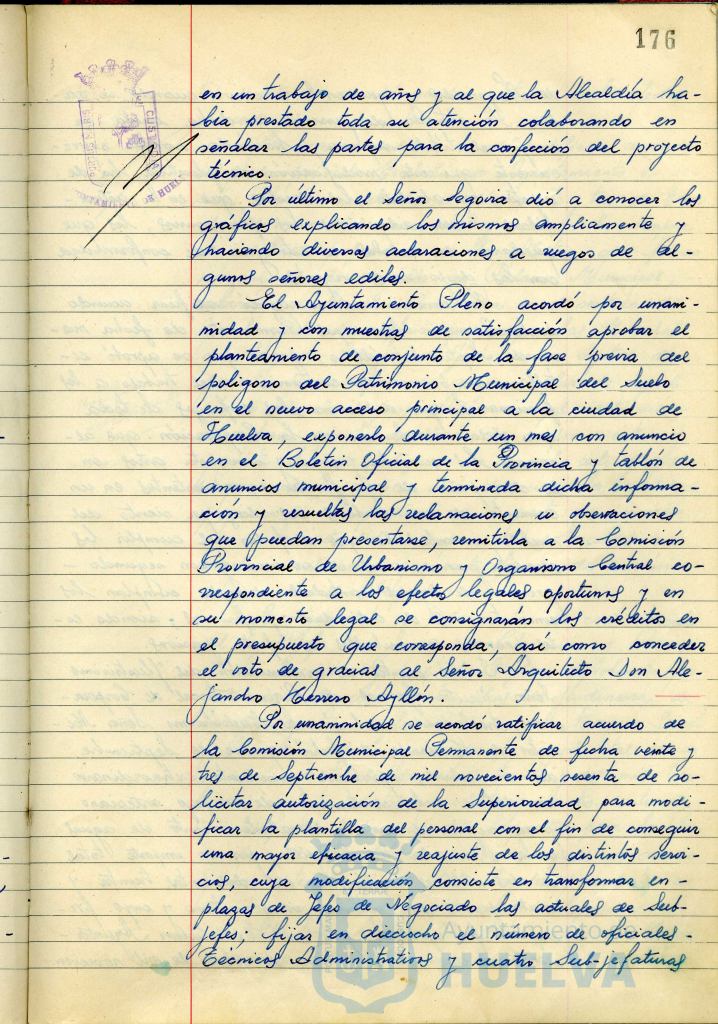 176
en un trabajo de años y al que la Alcaldía ha-
bía prestado toda su atención colaborando en
señalar las partes para la confección del proyecto
técnico.
Por último el Señor Segovia dió a conocer los
gráficos explicando los mismos ampliamente y
haciendo diversas aclaraciones a ruegos de al-
gunos señores ediles.
El Ayuntamiento Pleno acordó por unani-
midad y con muestras de satisfacción aprobar el
planteamiento de conjunto de la fase previa del
polígono del Patrimonio Municipal del Suelo
en el nuevo acceso principal a la ciudad de
Huelva, exponerlo durante un mes con anuncio
en el Boletín Oficial de la Provincia y tablón de
anuncios municipal y terminada dicha informa-
ción y resueltas las reclamaciones u observaciones
que puedan presentarse, remitirla a la Comisión
Provincial de Urbanismo y Organismo Central co-
rrespondiente a los efectos legales oportunos y en
su momento legal se consignarán los créditos en
el presupuesto que corresponda, así como conceder
el voto de gracias al Señor Arquitecto Don Ale-
jandro Herrero Ayllón.
Por unanimidad se acordó ratificar acuerdo de
la Comisión Municipal Permanente de fecha veinte y
tres de Septiembre de mil novecientos sesenta de so-
licitar autorización de la Superioridad para modi-
ficar la plantilla del personal con el fin de conseguir
una mayor eficacia y reajuste de los distintos servi-
cios, cuya modificación consiste en transformar en
plazas de Jefes de Negociado las actuales de Sub-
jefes; fijar en dieciocho el número de oficiales
Técnicos Administrativos y cuatro Sub-jefaturas
Ayuntamiento de
HUELVA